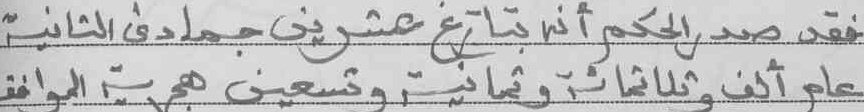 فقد صدر الحكم أنه بتاريخ عشرين جمادى الثانية
عام ألف وثلاثمائة وثمانية وتسعين هجرية الموافق